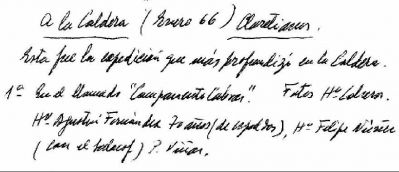 A la Caldera (Enero 66) Claretianos.
Esta fue la expedición que más profundizó en la Caldera.
1ª En el llamado "Campamento Cabras". Fotos Hº Cabrera.
Hº Agustín Fernández 70 años (de espaldas), Hº Felipe
(con el salacof) P. Viñas.